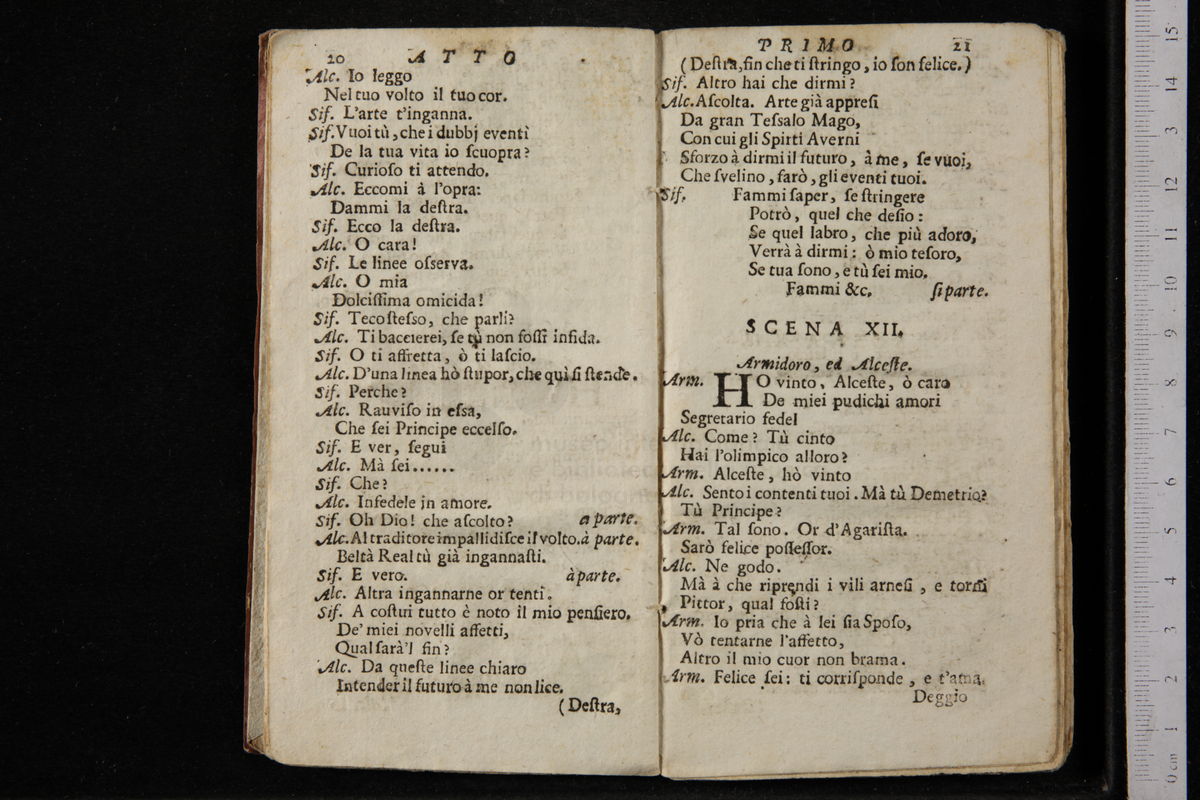 20 ATTO
Alc. Io leggo
Nel tuo volto il tuo cor.
Sif. L'arte t'inganna.
Sif. Vuoi tù, che i dubbj eventi
De la tua vita io ſcuopra?
Sif. Curioſo ti attendo.
Alc. Eccomi à l'opra:
Dammi la deſtra.
Sif. Ecco la deſtra.
Alc. O cara!
Sif. Le linee oſserva.
Alc. O mia
Dolciſſima omicida!
Sif. Teco ſteſso, che parli?
Alc. Ti baccierei, ſe tù non foſſi infida.
Sif. O ti affretta, ò ti laſcio.
Alc. D'una linea hò ſtupor, che quì ſi ſtende.
Sif. Perche?
Alc. Rauviſo in eſsa,
Che ſei Principe eccelſo.
Sif. E ver, ſegui
Alc. Mà ſei......
Sif. Che?
Alc. Infedele in amore.
Sif. Oh Dio! che aſcolto? a parte.
Alc. Al traditore impallidiſce il volto. à parte.
Beltà Real tù già ingannaſti.
Sif. E vero. à parte.
Alc. Altra ingannarne or tenti.
Sif. A coſtui tutto è noto il mio penſiero.
De' miei novelli affetti,
Qual ſarà'l fin?
Alc. Da queſte linee chiaro
Intender il futuro à me non lice.
(Deſtra,
PRIMO 21
(Deſtra, fin che ti ſtringo, io ſon felice.)
Sif. Altro hai che dirmi?
Alc. Aſcolta. Arte già appreſi
Da gran Teſsalo Mago,
Con cui gli Spirti Averni
Sforzo à dirmi il futuro, à me, ſe vuoi,
Che ſvelino, farò, gli eventi tuoi.
Sif. Fammi ſaper, ſe ſtringere
Potrò, quel che deſio:
Se quel labro, che più adoro,
Verrà à dirmi: ò mio teſoro,
Se tua ſono, e tù ſei mio.
Fammi &c. ſi parte.
SCENA XII.
Armidoro, ed Alceſte.
Arm. HO vinto, Alceſte, ò caro
De miei pudichi amori
Segretario fedel
Alc. Come? Tù cinto
Hai l'olimpico alloro?
Arm. Alceſte, hò vinto
Alc. Sento i contenti tuoi. Mà tù Demetrio?
Tù Principe?
Arm. Tal ſono. Or d'Agariſta.
Sarò felice poſſeſſor.
Alc. Ne godo.
Mà à che riprendi i vili arneſi, e torni
Pittor, qual foſti?
Arm. Io pria che à lei ſia Spoſo,
Vò tentarne l'affetto,
Altro il mio cuor non brama.
Arm. Felice ſei: ti corriſponde, e t'ama.
Deggio